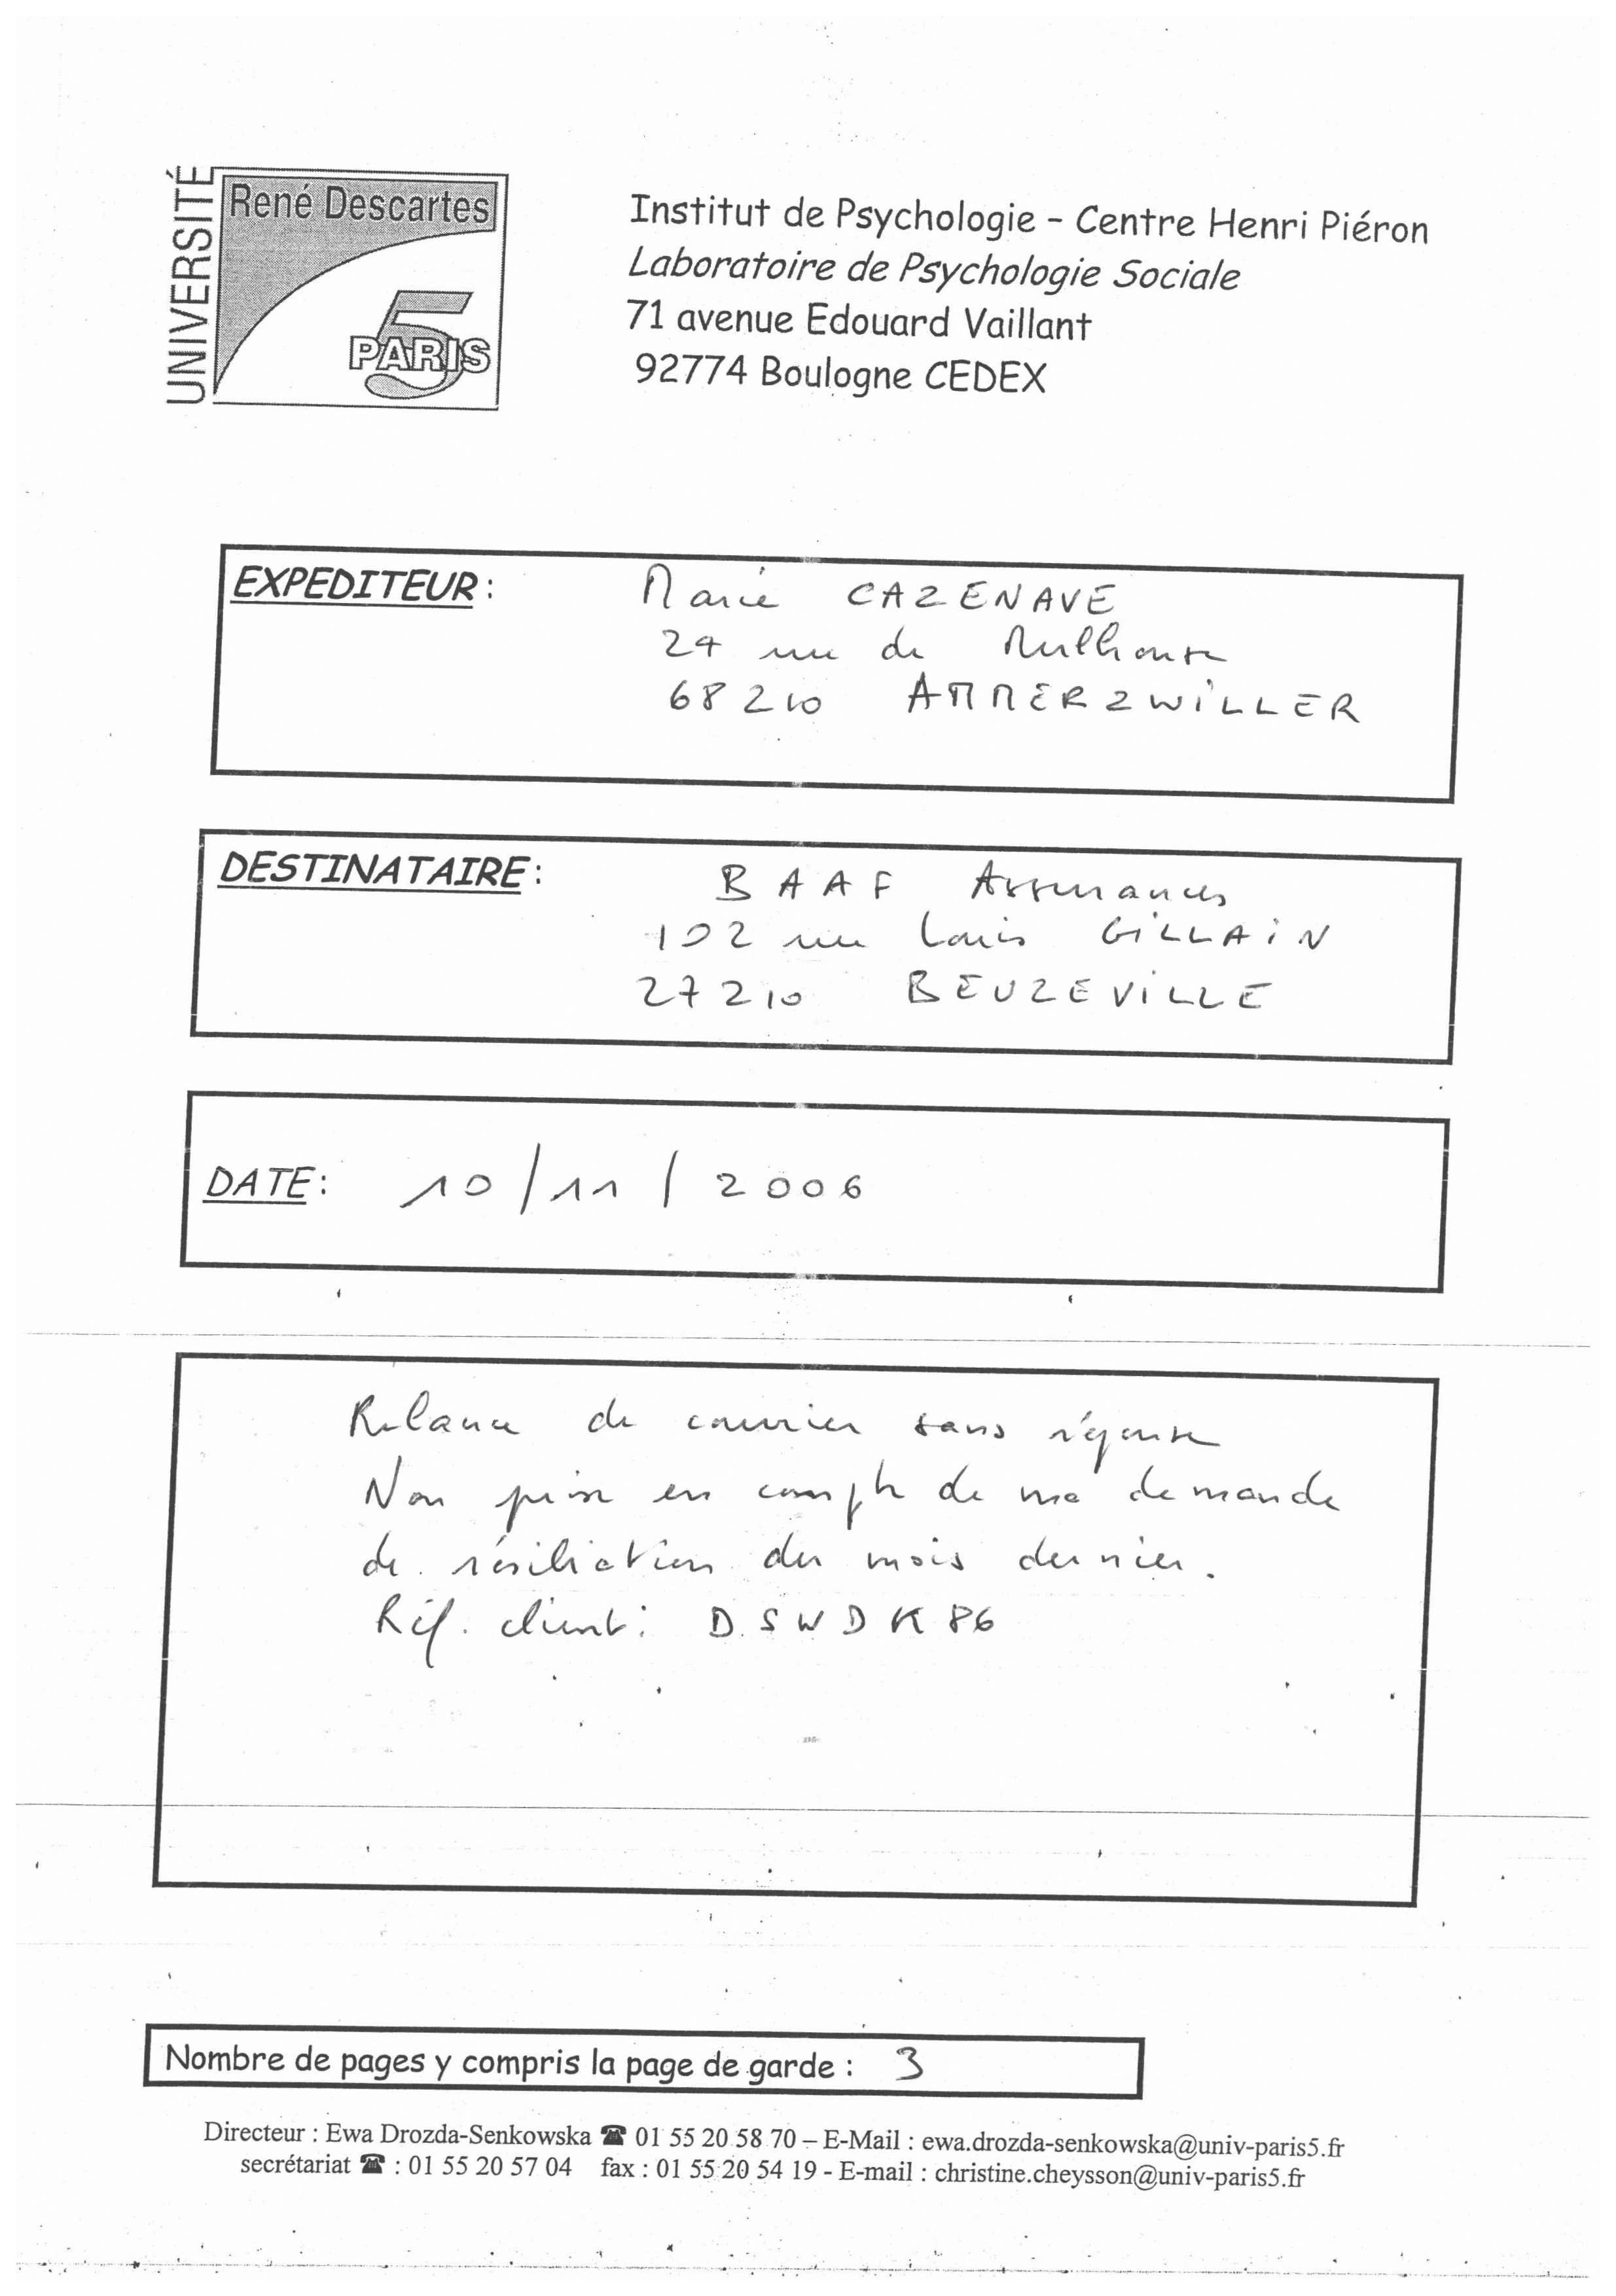 UNIVERSITÉ
René Descartes
PARIS 5
Institut de Psychologie - Centre Henri Piéron
Laboratoire de Psychologie Sociale
71 avenue Edouard Vaillant
92774 Boulogne CEDEX
EXPEDITEUR : Marie CAZENAVE
24 rue de Mulhouse
68210 AMMERZWILLER
DESTINATAIRE : BAAF Assurances
102 rue Louis GILLAIN
27210 BEUZEVILLE
DATE : 10/11/2006
Relance de courrier sans réponse
Non prise en compte de ma demande
de résiliation du mois dernier.
Réf. client : DSWDK86
Nombre de pages y compris la page de garde : 3
Directeur : Ewa Drozda-Senkowska ☎ 01 55 20 58 70 – E-Mail : ewa.drozda-senkowska@univ-paris5.fr
secrétariat ☎ : 01 55 20 57 04 fax : 01 55 20 54 19 - E-mail : christine.cheysson@univ-paris5.fr